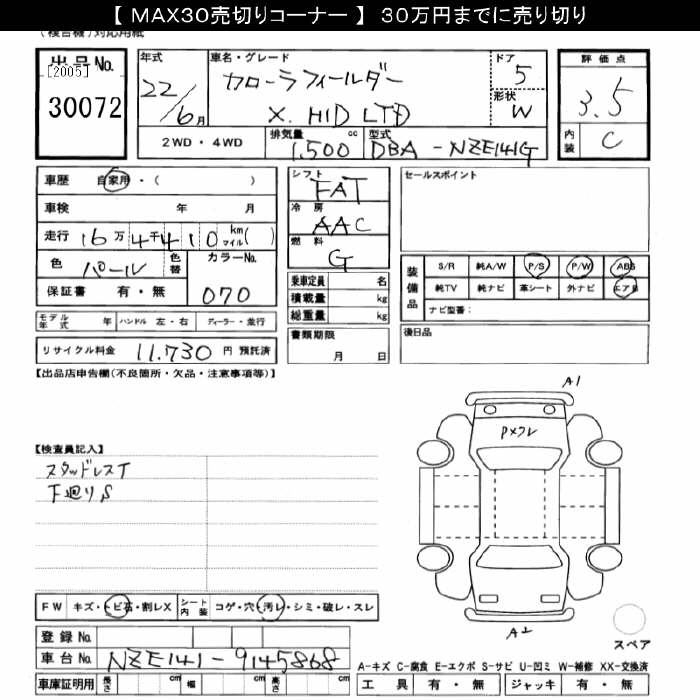 【 MAX30売切りコーナー 】 30万円までに売り切り
出品 No.
[2005]
30072
年式
22/6月
車名・グレード
カローラフィールダー
X. HID LTD
ドア
5
形状
W
評価点
3.5
内装
C
2WD・4WD
排気量
1,500 cc
型式
DBA-NZE141G
車歴 自家用・( )
車検 年 月
走行 16万4千410 km マイル( )
色 パール 色替
カラーNo.
070
保証書 有・無
シフト
FAT
冷房
AAC
燃料
G
セールスポイント
乗車定員 名
積載量 kg
総重量 kg
装備品
S/R 純A/W P/S P/W ABS
純TV 純ナビ 革シート 外ナビ エアB
ナビ型番:
モデル年式 年 ハンドル 左・右 ディーラー・並行
書類期限
月 日
後日品
リサイクル料金 11,730 円 預託済
【出品店申告欄(不良箇所・欠品・注意事項等)】
A1
【検査員記入】
スタッドレスT
下廻りS
FW キズ・トビ石・割レX シート内装 コゲ・穴・汚レ・シミ・破レ・スレ
登録 No.
車台 No. NZE141-9145868
車庫証明用 長さ cm 幅 cm 高さ cm
A2
スペア
A-キズ C-腐食 E-エクボ S-サビ U-凹ミ W-補修 XX-交換済
工具 有・無 ジャッキ 有・無